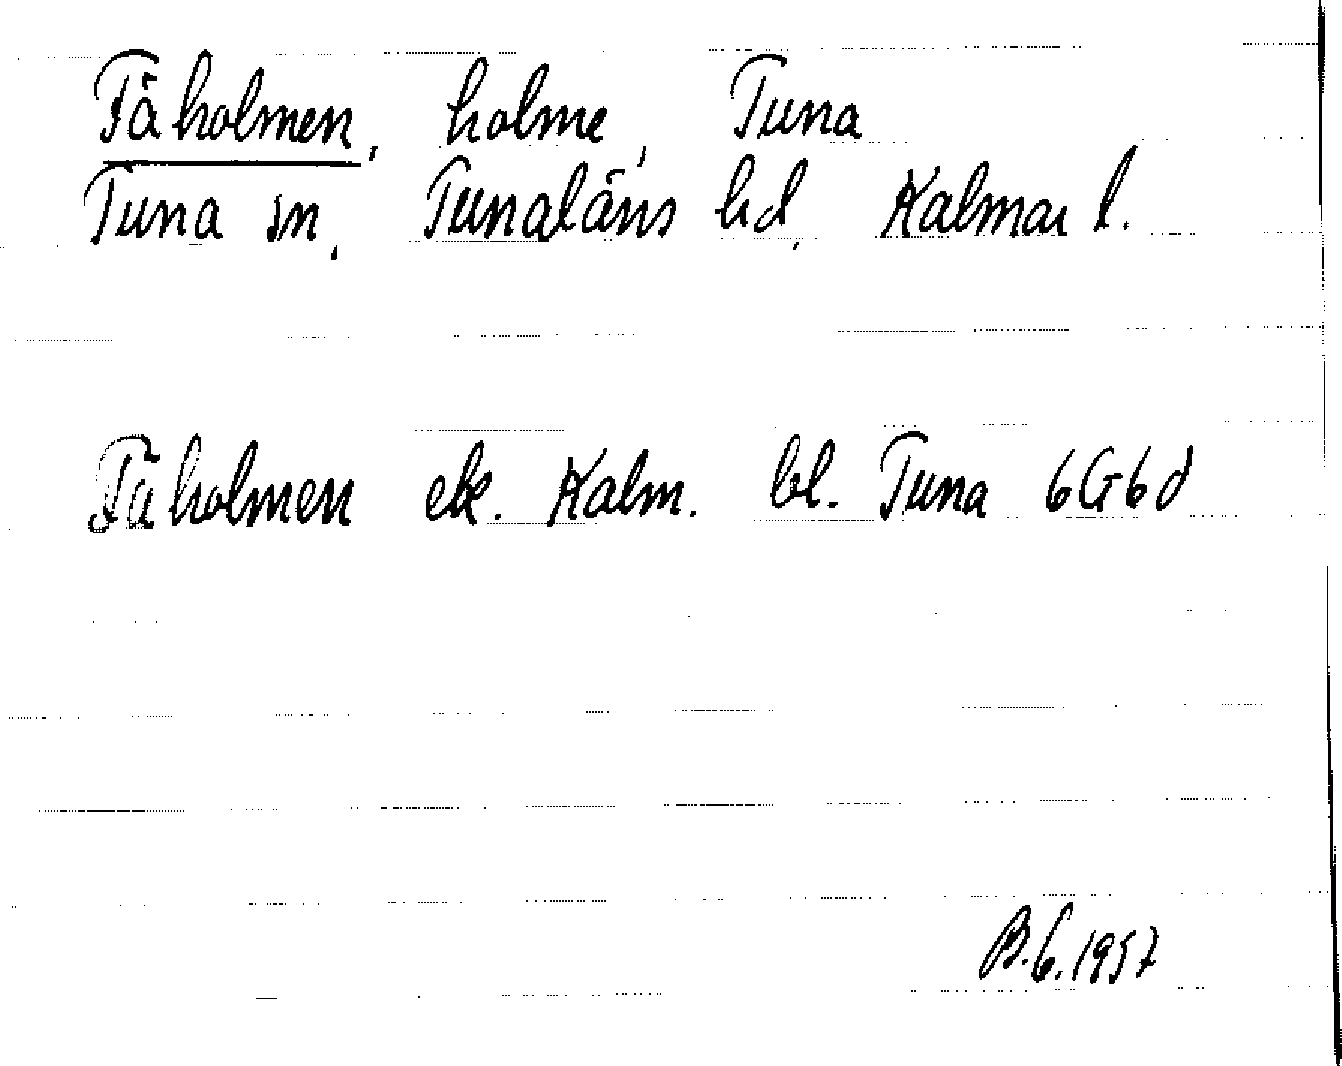 Fäholmen, holme, Tuna
Tuna sn, Tunaläns hd, Kalmar l.
Fäholmen ek. Kalm. bl. Tuna 6G6d
B.G.1957